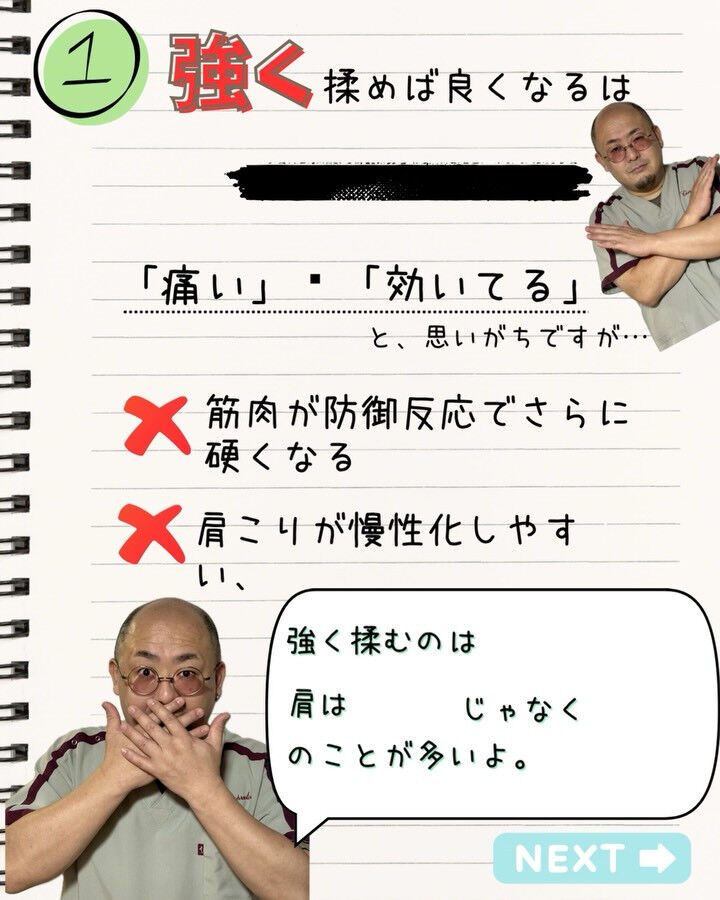 1
強く揉めば良くなるは
「痛い」・「効いてる」
と、思いがちですが…
筋肉が防御反応でさらに
硬くなる
肩こりが慢性化しやす
い、
強く揉むのは
肩は じゃなく
のことが多いよ。
NEXT